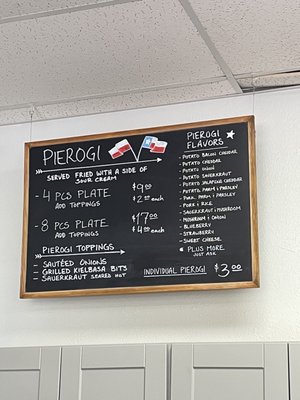 PIEROGI
SERVED FRIED WITH A SIDE OF
SOUR CREAM
- 4 PCS PLATE $9.00
ADD TOPPINGS $2.00 EACH
- 8 PCS PLATE $17.00
ADD TOPPINGS $4.00 EACH
PIEROGI TOPPINGS
- SAUTÉED ONIONS
- GRILLED KIELBASA BITS
- SAUERKRAUT SERVED HOT
PIEROGI
FLAVORS
- POTATO BACON CHEDDAR
- POTATO CHEDDAR
- POTATO ONION
- POTATO SAUERKRAUT
- POTATO JALAPEÑO CHEDDAR
- POTATO PARM & PARSLEY
- PORK PARM & PARSLEY
- PORK & RICE
- SAUERKRAUT & MUSHROOM
- MUSHROOM & ONION
- BLUEBERRY
- STRAWBERRY
- SWEET CHEESE
* PLUS MORE
JUST ASK
INDIVIDUAL PIEROGI $3.00